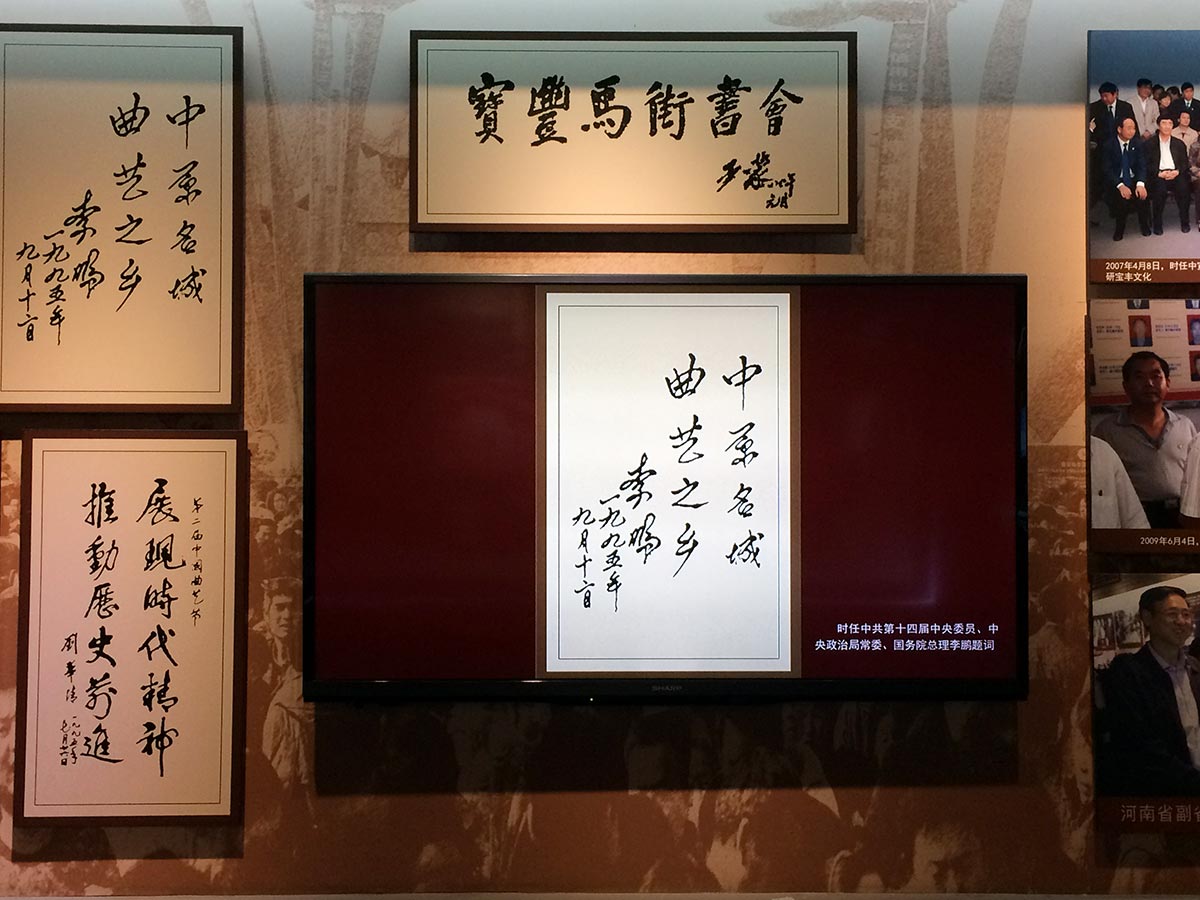 中原名城
曲艺之乡
李鹏
一九九五年
九月十二日
寳豐馬街書會
元月
第二届中国曲艺节
展現時代精神
推動歷史前進
劉華清
一九九五年
七月廿六日
中原名城
曲艺之乡
李鹏
一九九五年
九月十二日
时任中共第十四届中央委员、中
央政治局常委、国务院总理李鹏题词
SHARP
2007年4月8日，时任中宣
研宝丰文化
2009年6月4日，
河南省副省